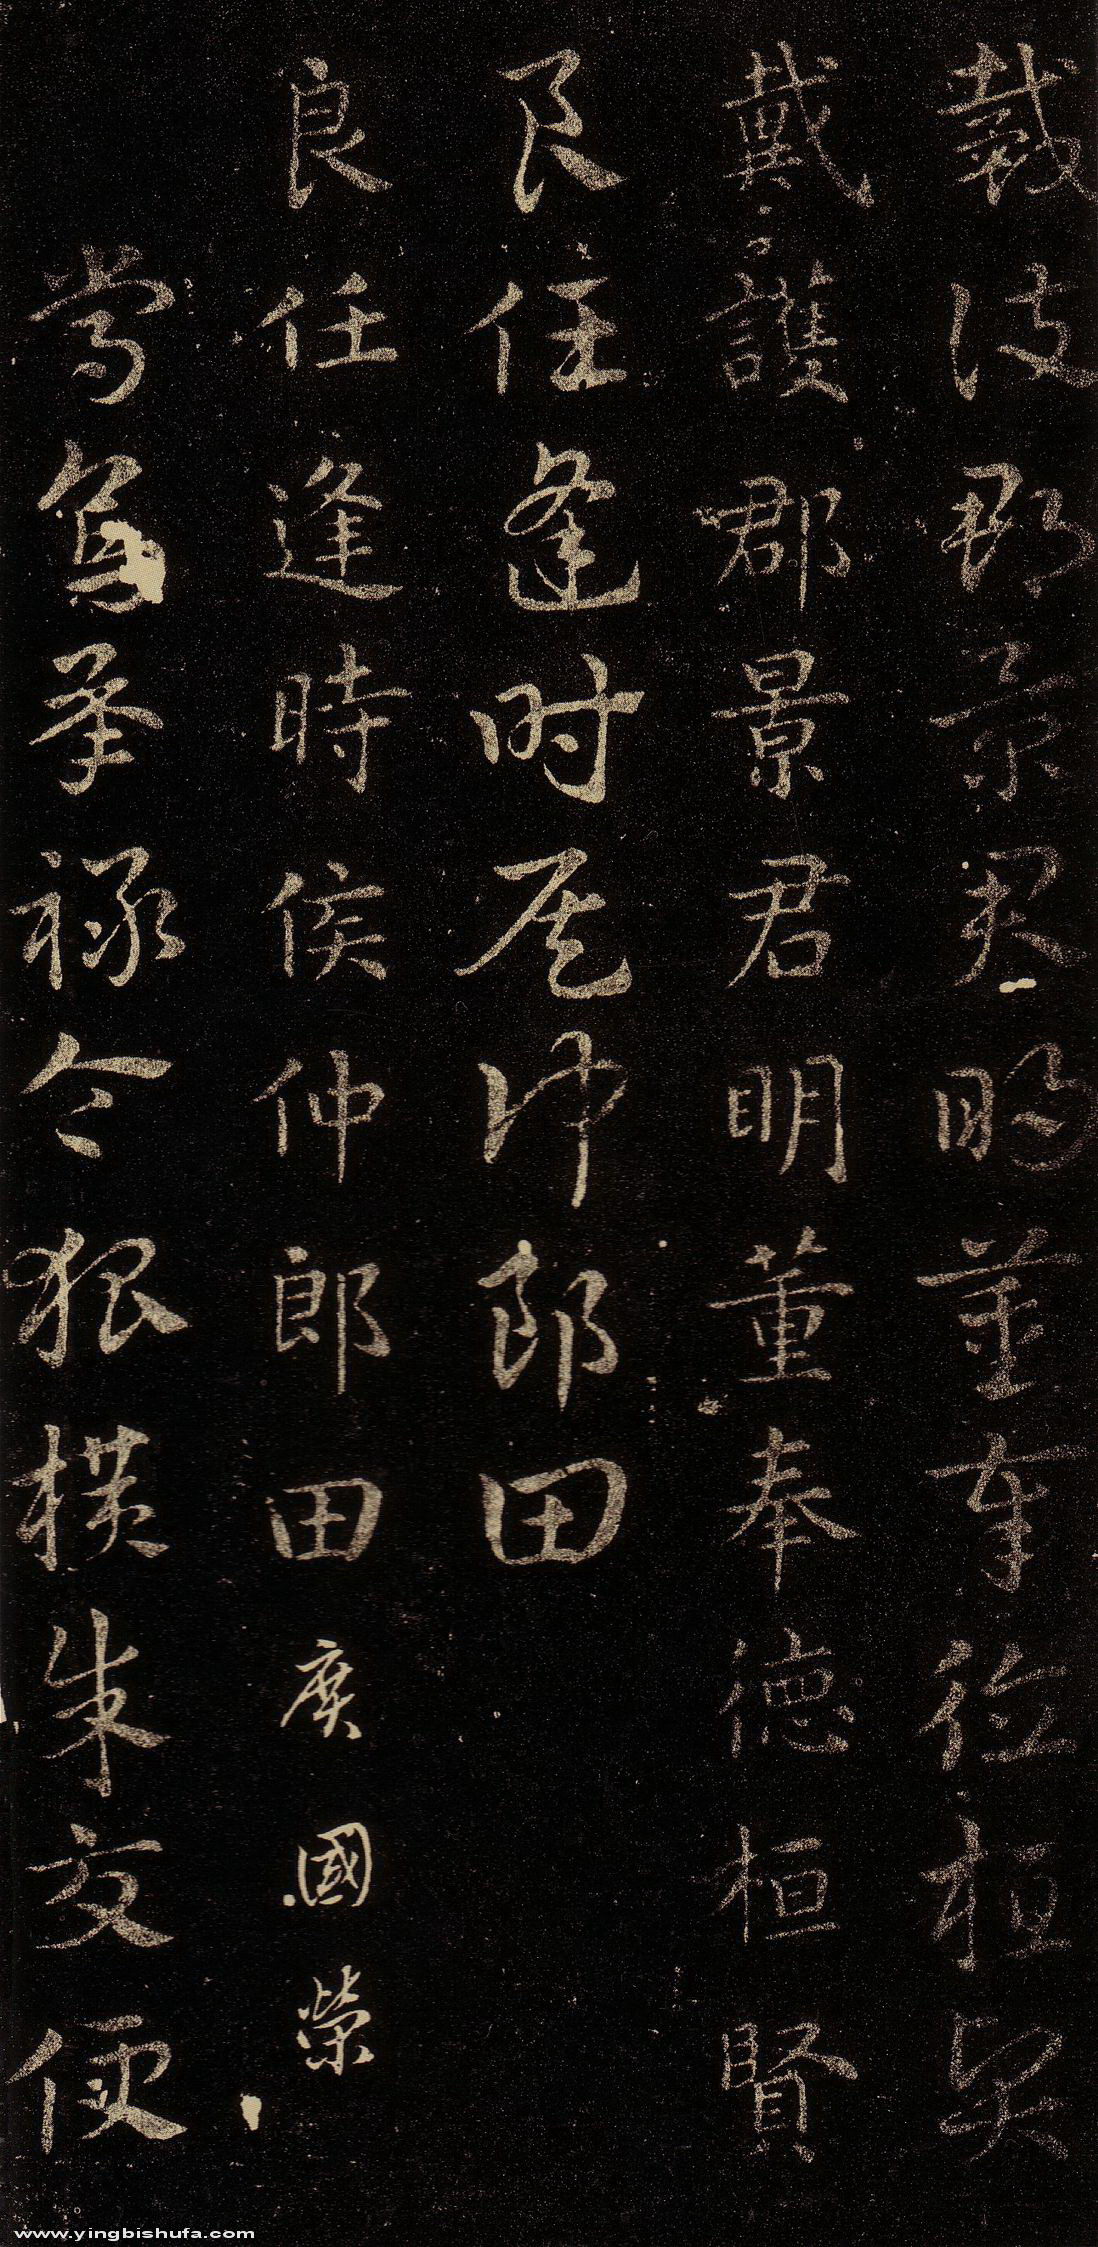 戴護郡景君明董奉德桓賢
戴護郡景君明董奉德桓賢
良任逢時侯仲郎田
良任逢時侯仲郎田廣國榮
常烏承祿令狐橫朱交便
www.yingbishufa.com